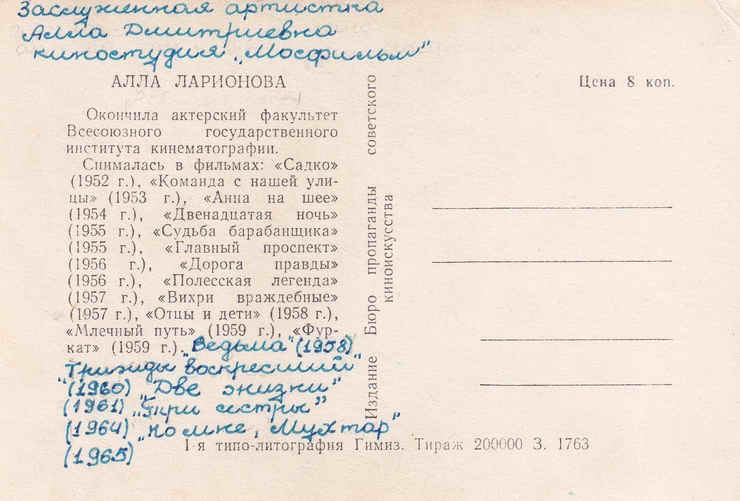 Заслуженная артистка
Алла Дмитриевна
киностудия „Мосфильм"
АЛЛА ЛАРИОНОВА
Окончила актерский факультет
Всесоюзного государственного
института кинематографии.
Снималась в фильмах: «Садко»
(1952 г.), «Команда с нашей ули-
цы» (1953 г.), «Анна на шее»
(1954 г.), «Двенадцатая ночь»
(1955 г.), «Судьба барабанщика»
(1955 г.), «Главный проспект»
(1956 г.), «Дорога правды»
(1956 г.), «Полесская легенда»
(1957 г.), «Вихри враждебные»
(1957 г.), «Отцы и дети» (1958 г.),
«Млечный путь» (1959 г.), «Фур-
кат» (1959 г.). „Ведьма" (1958)
„Трижды воскресший"
(1960) „Две жизни"
(1961) „Три сестры"
(1964) „Ко мне, Мухтар"
(1965)
Издание Бюро пропаганды советского
киноискусства
Цена 8 коп.
1-я типо-литография Гимиз. Тираж 200000 З. 1763